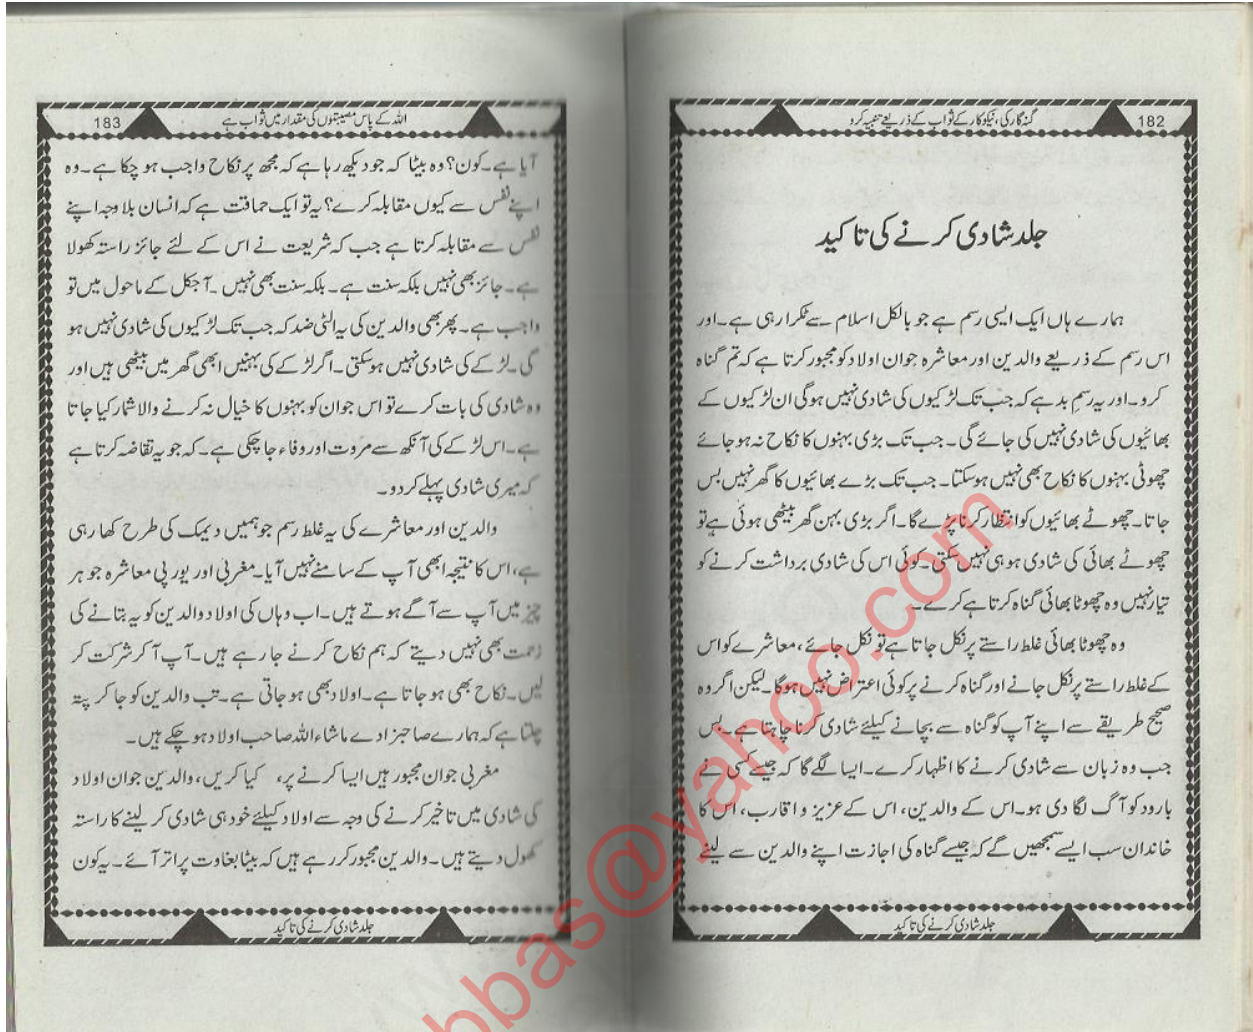 182
گنہگار کی، نیکوکار کے ثواب کے ذریعے تنبیہ کرو
جلد شادی کرنے کی تاکید
ہمارے ہاں ایک ایسی رسم ہے جو بالکل اسلام سے ٹکرا رہی ہے۔ اور
اس رسم کے ذریعے والدین اور معاشرہ جوان اولاد کو مجبور کرتا ہے کہ تم گناہ
کرو۔ اور یہ رسمِ بد ہے کہ جب تک لڑکیوں کی شادی نہیں ہوگی ان لڑکیوں کے
بھائیوں کی شادی نہیں کی جائے گی۔ جب تک بڑی بہنوں کا نکاح نہ ہو جائے
چھوٹی بہنوں کا نکاح بھی نہیں ہوسکتا۔ جب تک بڑے بھائیوں کا گھر نہیں بس
جاتا۔ چھوٹے بھائیوں کو انتظار کرنا پڑے گا۔ اگر بڑی بہن گھر بیٹھی ہوئی ہے تو
چھوٹے بھائی کی شادی ہو ہی نہیں سکتی۔ کوئی اس کی شادی برداشت کرنے کو
تیار نہیں وہ چھوٹا بھائی گناہ کرتا ہے کرے۔
وہ چھوٹا بھائی غلط راستے پر نکل جاتا ہے تو نکل جائے، معاشرے کو اس
کے غلط راستے پر نکل جانے اور گناہ کرنے پر کوئی اعتراض نہیں ہوگا۔ لیکن اگر وہ
صحیح طریقے سے اپنے آپ کو گناہ سے بچانے کیلئے شادی کرنا چاہتا ہے۔ بس
جب وہ زبان سے شادی کرنے کا اظہار کرے۔ ایسا لگے گا کہ جیسے کسی نے
بارود کو آگ لگا دی ہو۔ اس کے والدین، اس کے عزیز و اقارب، اس کا
خاندان سب ایسے سمجھیں گے کہ جیسے گناہ کی اجازت اپنے والدین سے لینے
جلد شادی کرنے کی تاکید
183
اللہ کے پاس مصیبتوں کی مقدار میں ثواب ہے
آیا ہے۔ کون؟ وہ بیٹا کہ جو دیکھ رہا ہے کہ مجھ پر نکاح واجب ہو چکا ہے۔ وہ
اپنے نفس سے کیوں مقابلہ کرے؟ یہ تو ایک حماقت ہے کہ انسان بلاوجہ اپنے
نفس سے مقابلہ کرتا ہے جب کہ شریعت نے اس کے لئے جائز راستہ کھولا
ہے۔ جائز بھی نہیں بلکہ سنت ہے۔ بلکہ سنت بھی نہیں۔ آجکل کے ماحول میں تو
واجب ہے۔ پھر بھی والدین کی یہ الٹی ضد کہ جب تک لڑکیوں کی شادی نہیں ہو
گی۔ لڑکے کی شادی نہیں ہوسکتی۔ اگر لڑکے کی بہنیں ابھی گھر میں بیٹھی ہیں اور
وہ شادی کی بات کرے تو اس جوان کو بہنوں کا خیال نہ کرنے والا شمار کیا جاتا
ہے۔ اس لڑکے کی آنکھ سے مروت اور وفاء جا چکی ہے۔ کہ جو یہ تقاضہ کرتا ہے
کہ میری شادی پہلے کردو۔
والدین اور معاشرے کی یہ غلط رسم جو ہمیں دیمک کی طرح کھا رہی
ہے، اس کا نتیجہ ابھی آپ کے سامنے نہیں آیا۔ مغربی اور یورپی معاشرہ جو ہر
چیز میں آپ سے آگے ہوتے ہیں۔ اب وہاں کی اولاد والدین کو یہ بتانے کی
زحمت بھی نہیں دیتے کہ ہم نکاح کرنے جا رہے ہیں۔ آپ آکر شرکت کر
لیں۔ نکاح بھی ہو جاتا ہے۔ اولاد بھی ہو جاتی ہے۔ تب والدین کو جا کر پتہ
چلتا ہے کہ ہمارے صاحبزادے ماشاء اللہ صاحب اولاد ہو چکے ہیں۔
مغربی جوان مجبور ہیں ایسا کرنے پر، کیا کریں، والدین جوان اولاد
کی شادی میں تاخیر کرنے کی وجہ سے اولاد کیلئے خود ہی شادی کر لینے کا راستہ
کھول دیتے ہیں۔ والدین مجبور کر رہے ہیں کہ بیٹا بغاوت پر اتر آئے۔ یہ کون
جلد شادی کرنے کی تاکید
bbas@yahoo.com